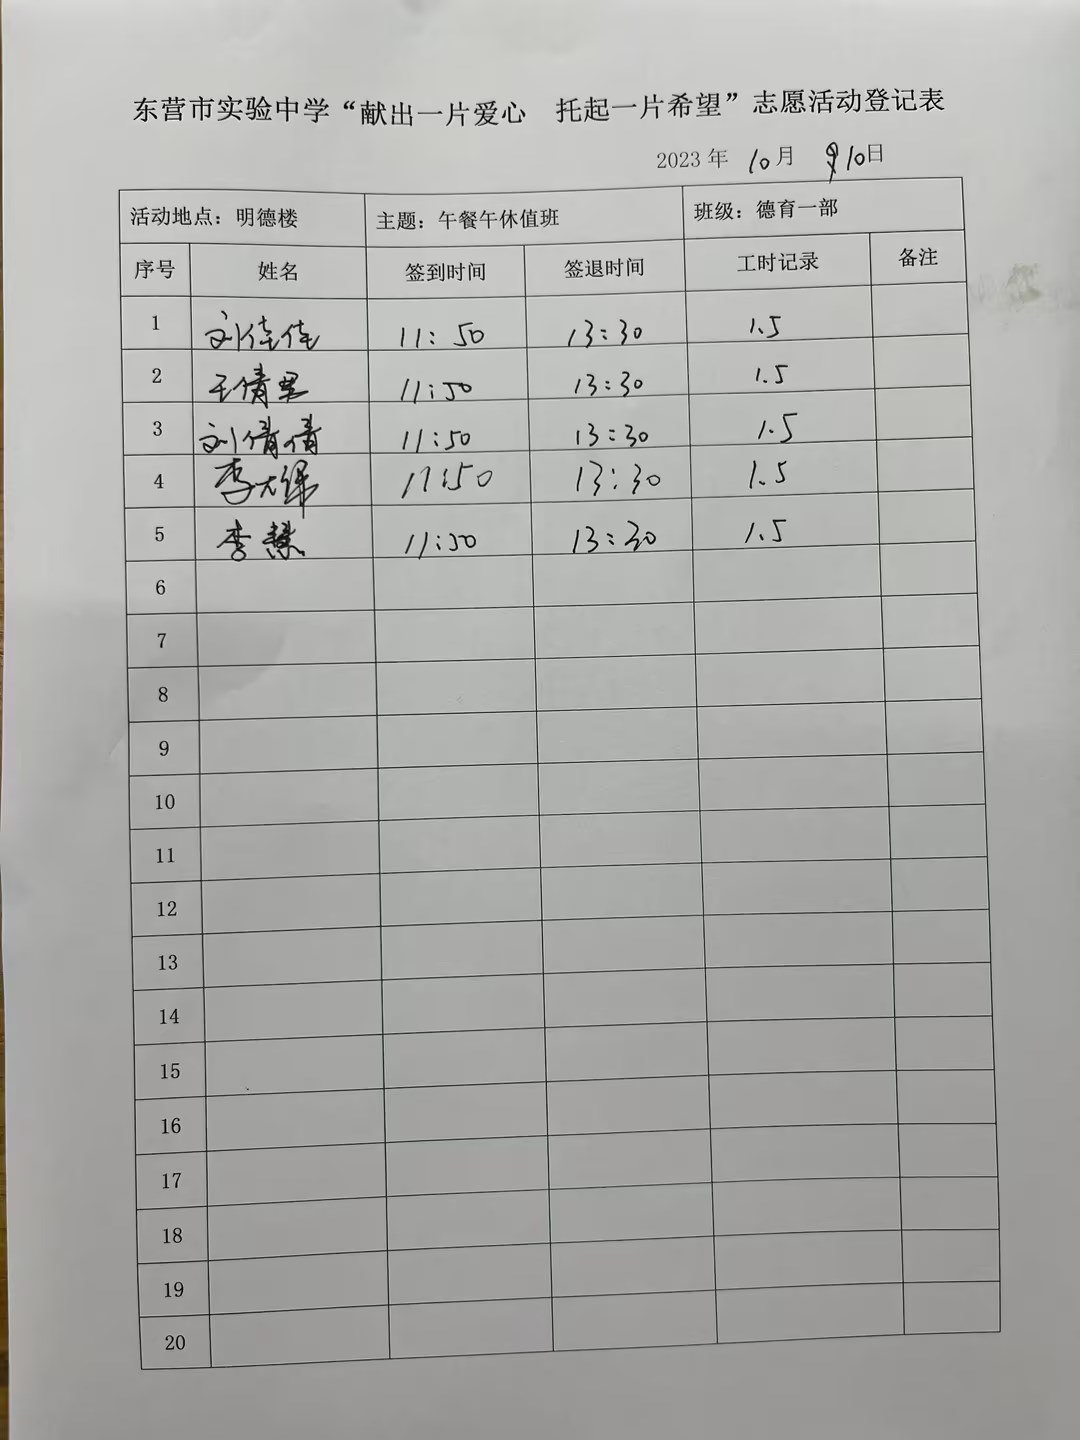 东营市实验中学“献出一片爱心 托起一片希望”志愿活动登记表
2023 年 10 月 10 日
活动地点：明德楼 主题：午餐午休值班 班级：德育一部
序号 姓名 签到时间 签退时间 工时记录 备注
1 刘佳佳 11:50 13:30 1.5
2 王倩 11:50 13:30 1.5
3 刘倩倩 11:50 13:30 1.5
4 李 11:50 13:30 1.5
5 李慧 11:50 13:30 1.5
6
7
8
9
10
11
12
13
14
15
16
17
18
19
20